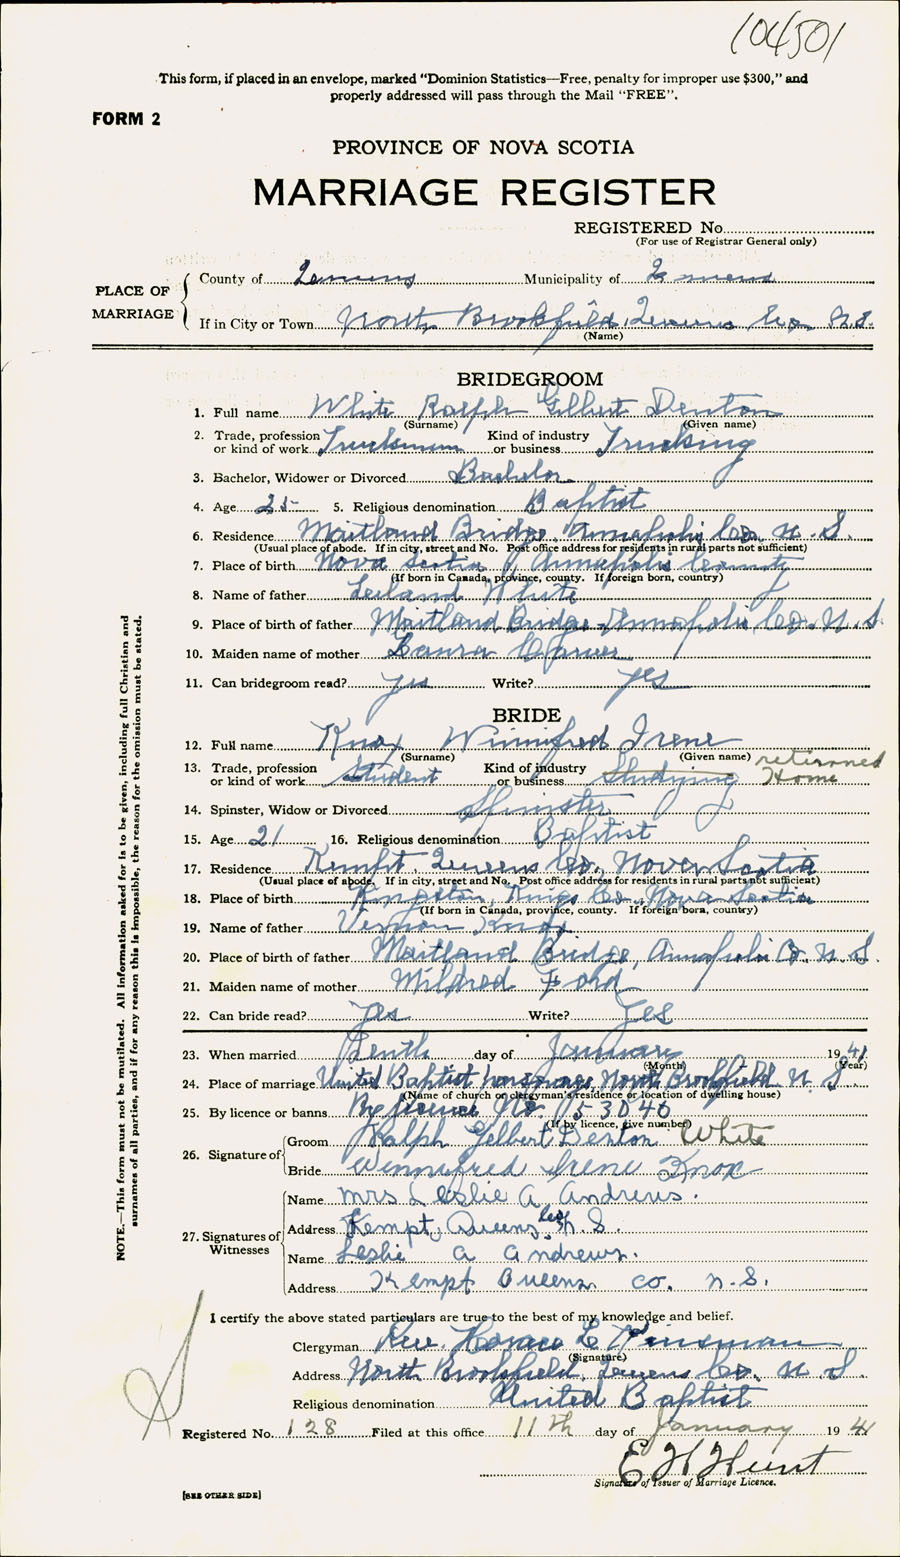 104501
This form, if placed in an envelope, marked "Dominion Statistics—Free, penalty for improper use $300," and
properly addressed will pass through the Mail "FREE".
FORM 2
PROVINCE OF NOVA SCOTIA
MARRIAGE REGISTER
REGISTERED No.
(For use of Registrar General only)
PLACE OF MARRIAGE
County of Queens Municipality of Queens
If in City or Town North Brookfield, Queens Co. N.S.
(Name)
BRIDEGROOM
1. Full name White Ralph Gilbert Denton
(Surname) (Given name)
2. Trade, profession or kind of work Truckman Kind of industry or business Trucking
3. Bachelor, Widower or Divorced Bachelor
4. Age 25 5. Religious denomination Baptist
6. Residence Maitland Bridge, Annapolis Co. N. S.
(Usual place of abode. If in city, street and No. Post office address for residents in rural parts not sufficient)
7. Place of birth Nova Scotia, Annapolis County
(If born in Canada, province, county. If foreign born, country)
8. Name of father Leland White
9. Place of birth of father Maitland Bridge Annapolis Co. N. S
10. Maiden name of mother Laura
11. Can bridegroom read? yes Write? yes
BRIDE
12. Full name Knox Winnifred Irene
(Surname) (Given name)
13. Trade, profession or kind of work Student Kind of industry or business Studying retirned Home
14. Spinster, Widow or Divorced Spinster
15. Age 21 16. Religious denomination Baptist
17. Residence Kempt, Queens Co. Nova Scotia
(Usual place of abode. If in city, street and No. Post office address for residents in rural parts not sufficient)
18. Place of birth Kingston, Kings Co. Nova Scotia
(If born in Canada, province, county. If foreign born, country)
19. Name of father Vernon Knox
20. Place of birth of father Maitland Bridge, Annapolis Co. N. S.
21. Maiden name of mother Mildred Ford
22. Can bride read? Yes Write? Yes
23. When married Tenth day of January 1941
(Month) (Year)
24. Place of marriage United Baptist Parsonage, North Brookfield N. S.
(Name of church or clergyman's residence or location of dwelling house)
25. By licence or banns By licence No. 53046
(If by licence, give number)
26. Signature of
Groom Ralph Gilbert Denton White
Bride Winnifred Irene Knox
27. Signatures of Witnesses
Name Mrs Leslie A. Andrews.
Address Kempt, Queens Co. N.S.
Name Leslie A Andrews.
Address Kempt Queens co. N.S.
I certify the above stated particulars are true to the best of my knowledge and belief.
Clergyman Rev. Horace L Kinsman
(Signature)
Address North Brookfield, Queens Co. N. S.
Religious denomination United Baptist
Registered No. 128 Filed at this office 11th day of January 1941
E H Hunt
Signature of Issuer of Marriage Licence.
[SEE OTHER SIDE]
NOTE.—This form must not be mutilated. All information asked for is to be given, including full Christian and
surnames of all parties, and if for any reason this is impossible, the reason for the omission must be stated.